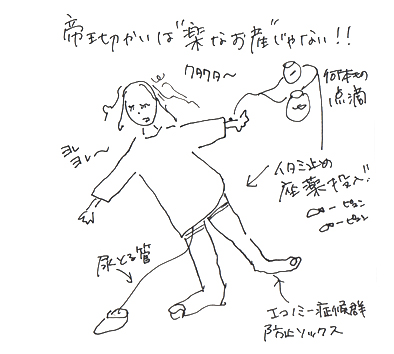 帝王切かいは"楽なお産"じゃない!!
クタクタ～
何本もの
点滴
ヨレ
ヨレ～
イタミ止め
座薬投入!!
ピョン
ピョン
尿とる管
エコノミー症候群
防止ソックス